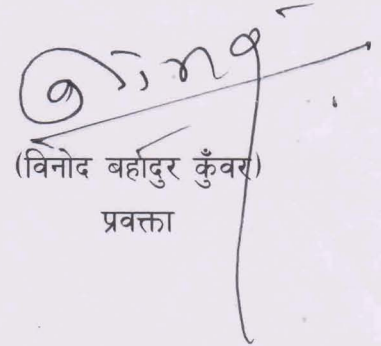 (विनोद बहादुर कुँवर)
प्रवक्ता